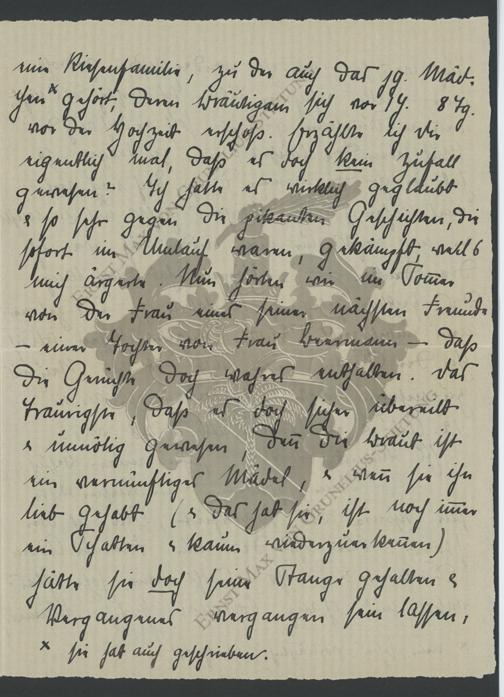 eine Riesenfamilie, zu der auch das jg. Mäd-
chen x gehört, deren Bräutigam sich vor 1 J. 8 Tg.
vor der Hochzeit erschoß. Erzählte ich Dir
eigentlich mal, daß es doch kein Zufall
gewesen? Ich hatte es wirklich geglaubt
& so sehr gegen die pikanten Geschichten, die
sofort im Umlauf waren, gekämpft, weil's
mich ärgerte. Nun hörten wir im Sommer
von der Frau eines seiner nächsten Freunde
– einer Tochter von Frau Beermann – daß
die Gerüchte doch wahres enthalten. Das
Traurigste, daß es doch sicher übereilt
& unnötig gewesen, den̄ die Braut ist
ein vernünftiges Mädel, & wen̄ sie ihn
lieb gehabt (& das hat sie, ist noch im̄er
ein Schatten & kaum wiederzuerken̄en)
hätte sie doch seine Stange gehalten &
Vergangenes vergangen sein lassen,
x sie hat auch geschrieben.
ERNST MAX VON GRUNELIUS-STIFTUNG
ERNST MAX VON GRUNELIUS-STIFTUNG